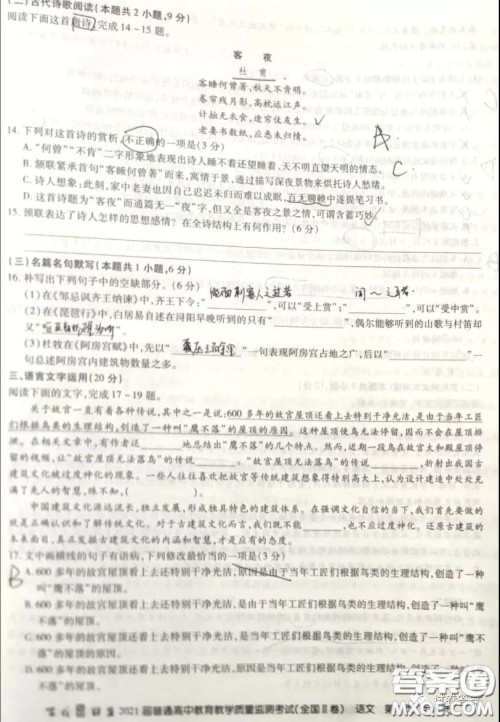 (二)古代诗歌阅读(本题共2小题,9分)
阅读下面这首唐诗,完成14~15题。
客 夜
杜 甫
客睡何曾著,秋天不肯明。
卷帘残月影,高枕远江声。
计拙无衣食,途穷仗友生。
老妻书数纸,应悉未归情。
14. 下列对这首诗的赏析,不正确的一项是(3分)
A. “何曾”“不肯”二字形象地表现出诗人睡不着还望睡着,天不明直望天明的情态。
B. 颔联紧承首句“客睡何曾著”而来,寓情于景,通过描写深夜景物来烘托诗人愁绪。
C. 诗人想象:此刻,家中老妻也因自己迟迟未归而难以成眠,百无聊赖中遂提笔习书。
D. 这首诗题为“客夜”而通篇无一“夜”字,但又全是客夜之景之情,可谓含蓄巧妙。
15. 颈联表达了诗人怎样的思想感情?在全诗结构上有何作用?(6分)
(三)名篇名句默写(本题共1小题,6分)
16. 补写出下列句子中的空缺部分。(6分)
(1)在《邹忌讽齐王纳谏》中,齐王下令:“ 能面刺寡人之过者 ”,可以“受上赏”;“ ”,可以“受中赏”。
(2)在《琵琶行》中,白居易自述在浔阳早晚听到的只有“ ”,偶尔能够听到的山歌与村笛却
又“ ”。
(3)杜牧在《阿房宫赋》中,先以“ 覆压三百余里 ”一句表现阿房宫占地之广,后以“
句总述阿房宫内建筑物数量之多。
三、语言文字运用(20分)
阅读下面的文字,完成17~19题。
关于故宫一直有着各种传说,其中之一是说:600多年的故宫屋顶还看上去特别干净光洁,是由于当年工匠
们根据鸟类的生理结构,创造了一种叫“鹰不落”的屋顶的原因。这种屋顶使鸟无法停留,因而不会在屋顶排
泄。在相关文章中,有作者还 地总结出“鹰不落”的几个特点。然而,近期一段鸟在故宫太和殿停留
的视频,让“故宫屋顶无法落鸟”的传说 。“故宫屋顶无法落鸟”的传说 ,折射出我国古
建筑文化被过度神化的现象。一些人往往喜欢把故宫建筑想象得特别高大上,认为设计建造中处处充
满了先人的智慧,殊不知,( )。
中国建筑文化源远流长,独立发展,形成独具特色的建筑体系。在强调文化自信的当下,我们首先要做的
就是正确认识和了解传统文化。对于古建筑文化而言,我们既不能 ,也不应过度神化。还原古建筑的
本来面目,真正发掘古建筑文化的内涵,才是对待古建筑文化的正确方式。
17. 文中画横线的句子有语病,下列修改最恰当的一项是(3分)
B
A. 600多年的故宫屋顶看上去还特别干净光洁,原因是由于当年工匠们根据鸟类的生理结构,创造了一种
叫“鹰不落”的屋顶。
B. 600多年的故宫屋顶看上去还特别干净光洁,是由于当年工匠们根据鸟类的生理结构,创造了一种叫“鹰
不落”的屋顶。
C. 600多年的故宫屋顶还看上去特别干净光洁,是当年工匠们根据鸟类的生理结构,创造了一种叫“鹰不落”
的屋顶的原因。
D. 600多年的故宫屋顶还看上去特别干净光洁,原因是当年工匠们根据鸟类的生理结构,创造了一种叫“鹰
不落”的屋顶。
2021届普通高中教育教学质量监测考试(全国Ⅱ卷) 语文
A
C